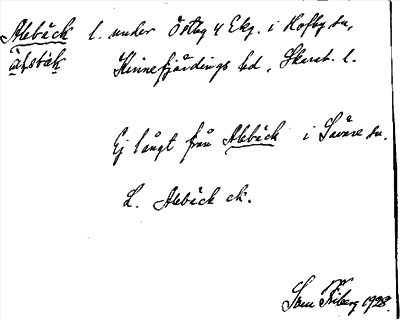 Alebäck l. under Östtog 4 Ekg. i Hofby sn,
Kinnefjärdings hd, Skarab. l.
Ej långt från Alebäck i Såvare sn.
L. Alebäck ck.
Sam Friberg 1928.